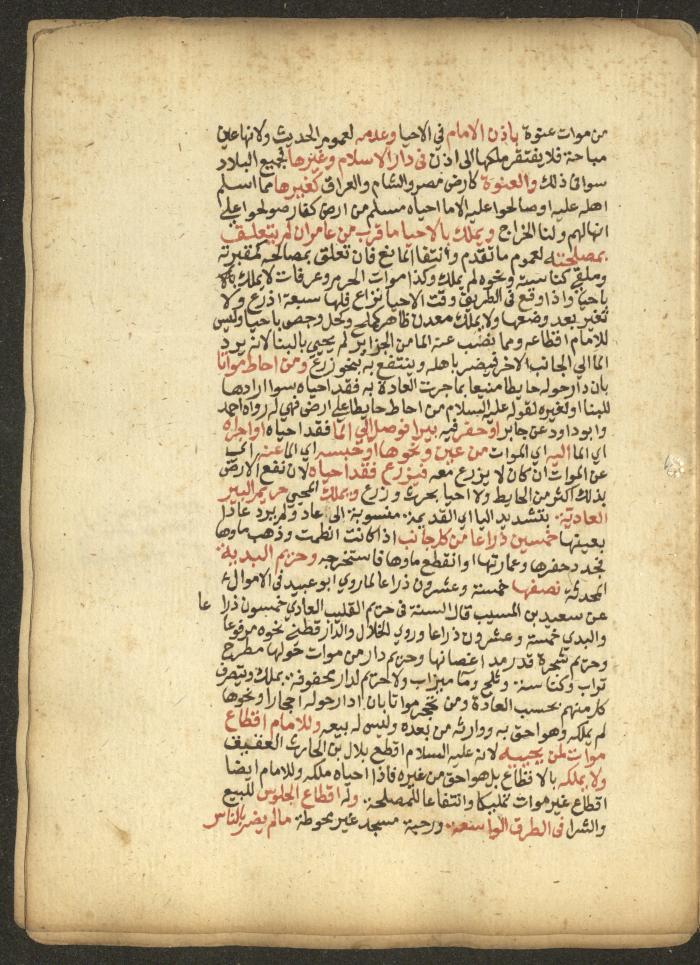 من موات عنوة باذن الامام في الاحيا وعدمه لعموم الحديث ولانها عين
مباحة فلا يفتقر ملكها الى اذن في دار الاسلام وغيرها فجميع البلاد
سوا في ذلك والعنوة كارض مصر والشام والعراق كغيرها مما اسلم
اهله عليه او صالحوا عليه الا ما احياه مسلم من ارض كفار صولحوا على
انها لهم ولنا الخراج ويملك بالاحيا ما قرب من عامر ان لم يتعلق
بمصلحته لعموم ما تقدم وانتفا المانع فان تعلق بمصالحه كمقبرته
وملقى كناسته ونحوه لم يملك وكذا موات الحرم وعرفات لا يملك
باحيا واذا وقع في الطريق وقت الاحيا نزاع فلها سبعة اذرع ولا
تغير بعد وضعها ولا يملك معدن ظاهر كملح وكحل وجص باحيا وليس
للامام اقطاعه وما نضب عنه الما من الجزاير لم يحيى بالبنا لانه يرد
الما الى الجانب الاخر فيضر باهله وينتفع به بنحو زرع ومن احاط مواتا
بان دار حوله حايطا منيعا بما جرت العادة به فقد احياه سوا ارادها
للبنا او لغيره لقوله عليه السلام من احاط حايطا على ارض فهي له رواه احمد
وابو داود عن جابر او حفر فيه بيرا فوصل الى الما فقد احياه او اجراه
اي الما اليه اي الموات من عين ونحوها او حبسه اي الما عنه اي
عن الموات ان كان لا يزرع معه فيزرع فقد احياه لان نفع الارض
بذلك اكثر من الحايط ولا احيا بحرث وزرع ويملك المحيي حريم البير
العادية بتشديد اليا اي القديمة منسوبة الى عاد ولم يرد عادا
بعينها خمسين ذراعا من كل جانب اذا كانت انطمت وذهب ماوها
فجدد حفرها وعمارتها او انقطع ماوها فاستخرجه وحريم البدية
المحدثة نصفها خمسة وعشرون ذراعا لما روي ابو عبيد في الاموال
عن سعيد بن المسيب قال السنة في حريم القليب العادي خمسون ذراعا
والبدي خمسة وعشرون ذراعا وروى الخلال والدارقطني نحوه مرفوعا
وحريم شجرة قدر مد اغصانها وحريم دار من موات حولها مطرح
تراب وكناسة وثلج وما ميزاب ولا حريم لدار محفوفة بملك ويتصرف
كل منهم بحسب العادة ومن تحجر مواتا بان ادار حوله احجارا ونحوها
لم يملكه وهو احق به ووارثه من بعده وليس له بيعه وللامام اقطاع
موات لمن يحييه لانه عليه السلام اقطع بلال بن الحارث العقيق
ولا يملكه بالاقطاع بل هو احق من غيره فاذا احياه ملكه وللامام ايضا
اقطاع غير موات تمليكا وانتفاعا للمصلحة وله اقطاع الجلوس للبيع
والشرا في الطرق الواسعة ورحبة مسجد غير محوطة ما لم يضر بالناس